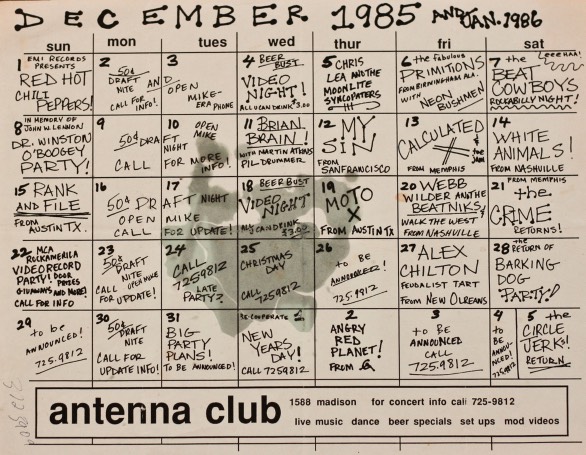 DECEMBER 1985 AND JAN. 1986
sun mon tues wed thur fri sat
1 EMI RECORDS
PRESENTS
RED HOT
CHILI
PEPPERS!
2 50¢
DRAFT
NITE AND
CALL FOR
INFO!
3
OPEN
MIKE-
ERA PHONE
4 BEER
BUST
VIDEO
NIGHT!
ALL U CAN DRINK $3.00
5 CHRIS
LEA AND THE
MOONLITE
SYNCOPATERS
6 the fabulous
PRIMITONS
FROM BIRMINGHAM ALA.
WITH NEON
BUSHMEN
7 the
BEAT
COWBOYS
ROCKABILLY NIGHT!
8 IN MEMORY OF
JOHN W. LENNON
DR. WINSTON
O'BOOGEY
PARTY!
9
50¢ DRA
CALL
10 OPEN
MIKE
FT
NIGHT
FOR MORE
INFO!
11 BRIAN
BRAIN!
WITH MARTIN ATKINS
PIL DRUMMER
12 MY
SIN
FROM
SAN FRANCISCO
13
CALCULATED
FROM MEMPHIS
14
WHITE
ANIMALS!
FROM NASHVILLE
15 RANK
AND FILE
FROM
AUSTIN TX.
16
50¢ DR
OPEN
CALL
17
AFT NIGHT
MIKE
FOR UPDATE!
18 BEER BUST
VIDEO
NIGHT
$3.00
19
MOTO
X
FROM AUSTIN TX
20 WEBB
WILDER AND THE
BEATNIKS,
WALK THE WEST
FROM NASHVILLE
21 FROM MEMPHIS
the
CRIME
RETURNS!
22 MCA
ROCKAMERICA
VIDEO RECORD
PARTY! DOOR
PRIZES
GIVAWAYS AND MORE!
CALL FOR INFO
23
50¢
DRAFT
NITE
OPEN MIKE
CALL
FOR UPDATE!
24
CALL
7259812
LATE
PARTY?
25
CHRISTMAS
DAY
CALL
7259812
26
to BE
ANNOUNCED!
725-9812
27 ALEX
CHILTON
FEUDALIST TART
FROM NEW ORLEANS
28 the RETURN OF
BARKING
DOG
PARTY!
29
to be
ANNOUNCED!
725.9812
30
50¢
DRAFT
NITE
CALL FOR
UPDATE INFO!
31
BIG
PARTY
PLANS!
TO BE ANNOUNCED!
RE-COOPERATE
NEW
YEARS
DAY!
CALL 7259812
2
ANGRY
RED
PLANET!
FROM
3
to BE
ANNOUNCED
CALL
725.9812
4
TO
BE
ANNOU-
NCED!
725-9812
5 the
CIRCLE
JERKS!
RETURN
antenna club
1588 madison for concert info call 725-9812
live music dance beer specials set ups mod videos